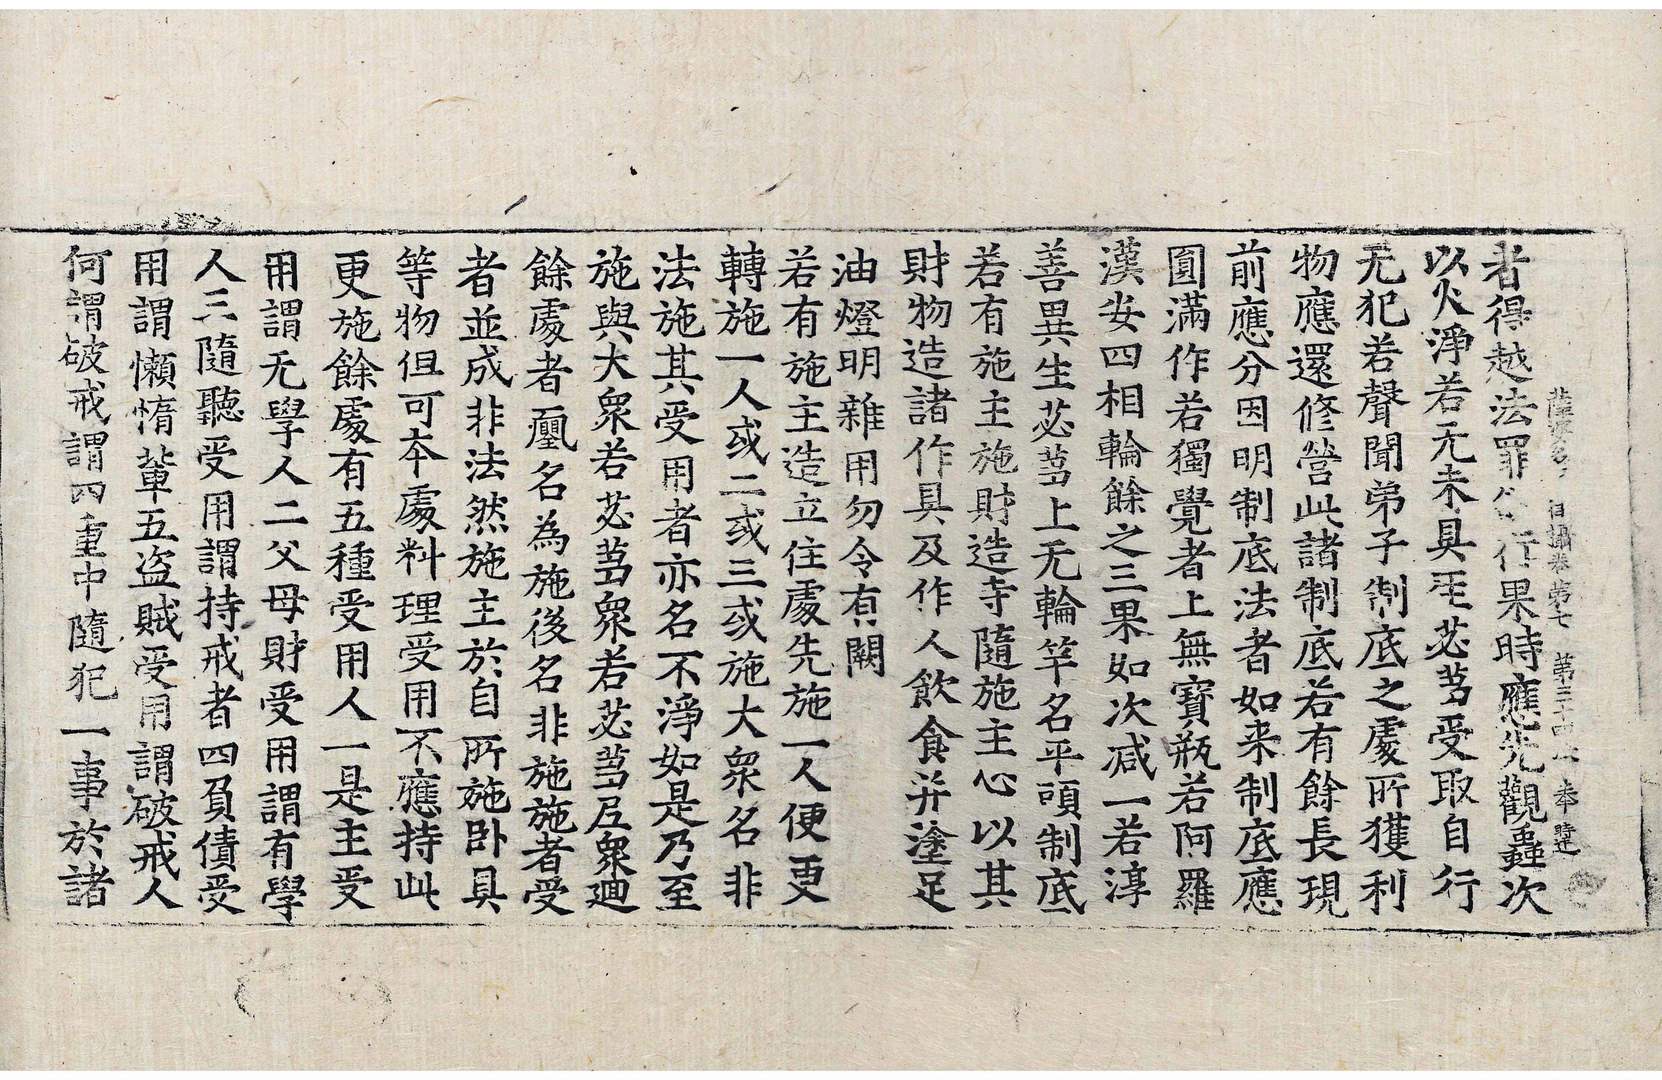 者得越法罪行果時應先觀蟲次
以火淨若无未具苾芻受取自行
无犯若聲聞弟子制底之處所獲利
物應還修營此諸制底若有餘長現
前應分因明制底法者如来制底應
圓滿作若獨覺者上無寶瓶若阿羅
漢安四相輪餘之三果如次減一若淳
善異生苾芻上无輪竿名平頭制底
若有施主施財造寺隨施主心以其
財物造諸作具及作人飲食并塗足
油燈明雜用勿令有闕
若有施主造立住處先施一人便更
轉施一人或二或三或施大衆名非
法施其受用者亦名不淨如是乃至
施與大衆若苾芻衆若苾芻尼衆迴
餘處者初名為施後名非施施者受
者並成非法然施主於自所施卧具
等物但可夲處料理受用不應持此
更施餘處有五種受用人一是主受
用謂无學人二父母財受用謂有學
人三隨聽受用謂持戒者四負債受
用謂懶惰輩五盜賊受用謂破戒人
何謂破戒謂四重中隨犯一事於諸